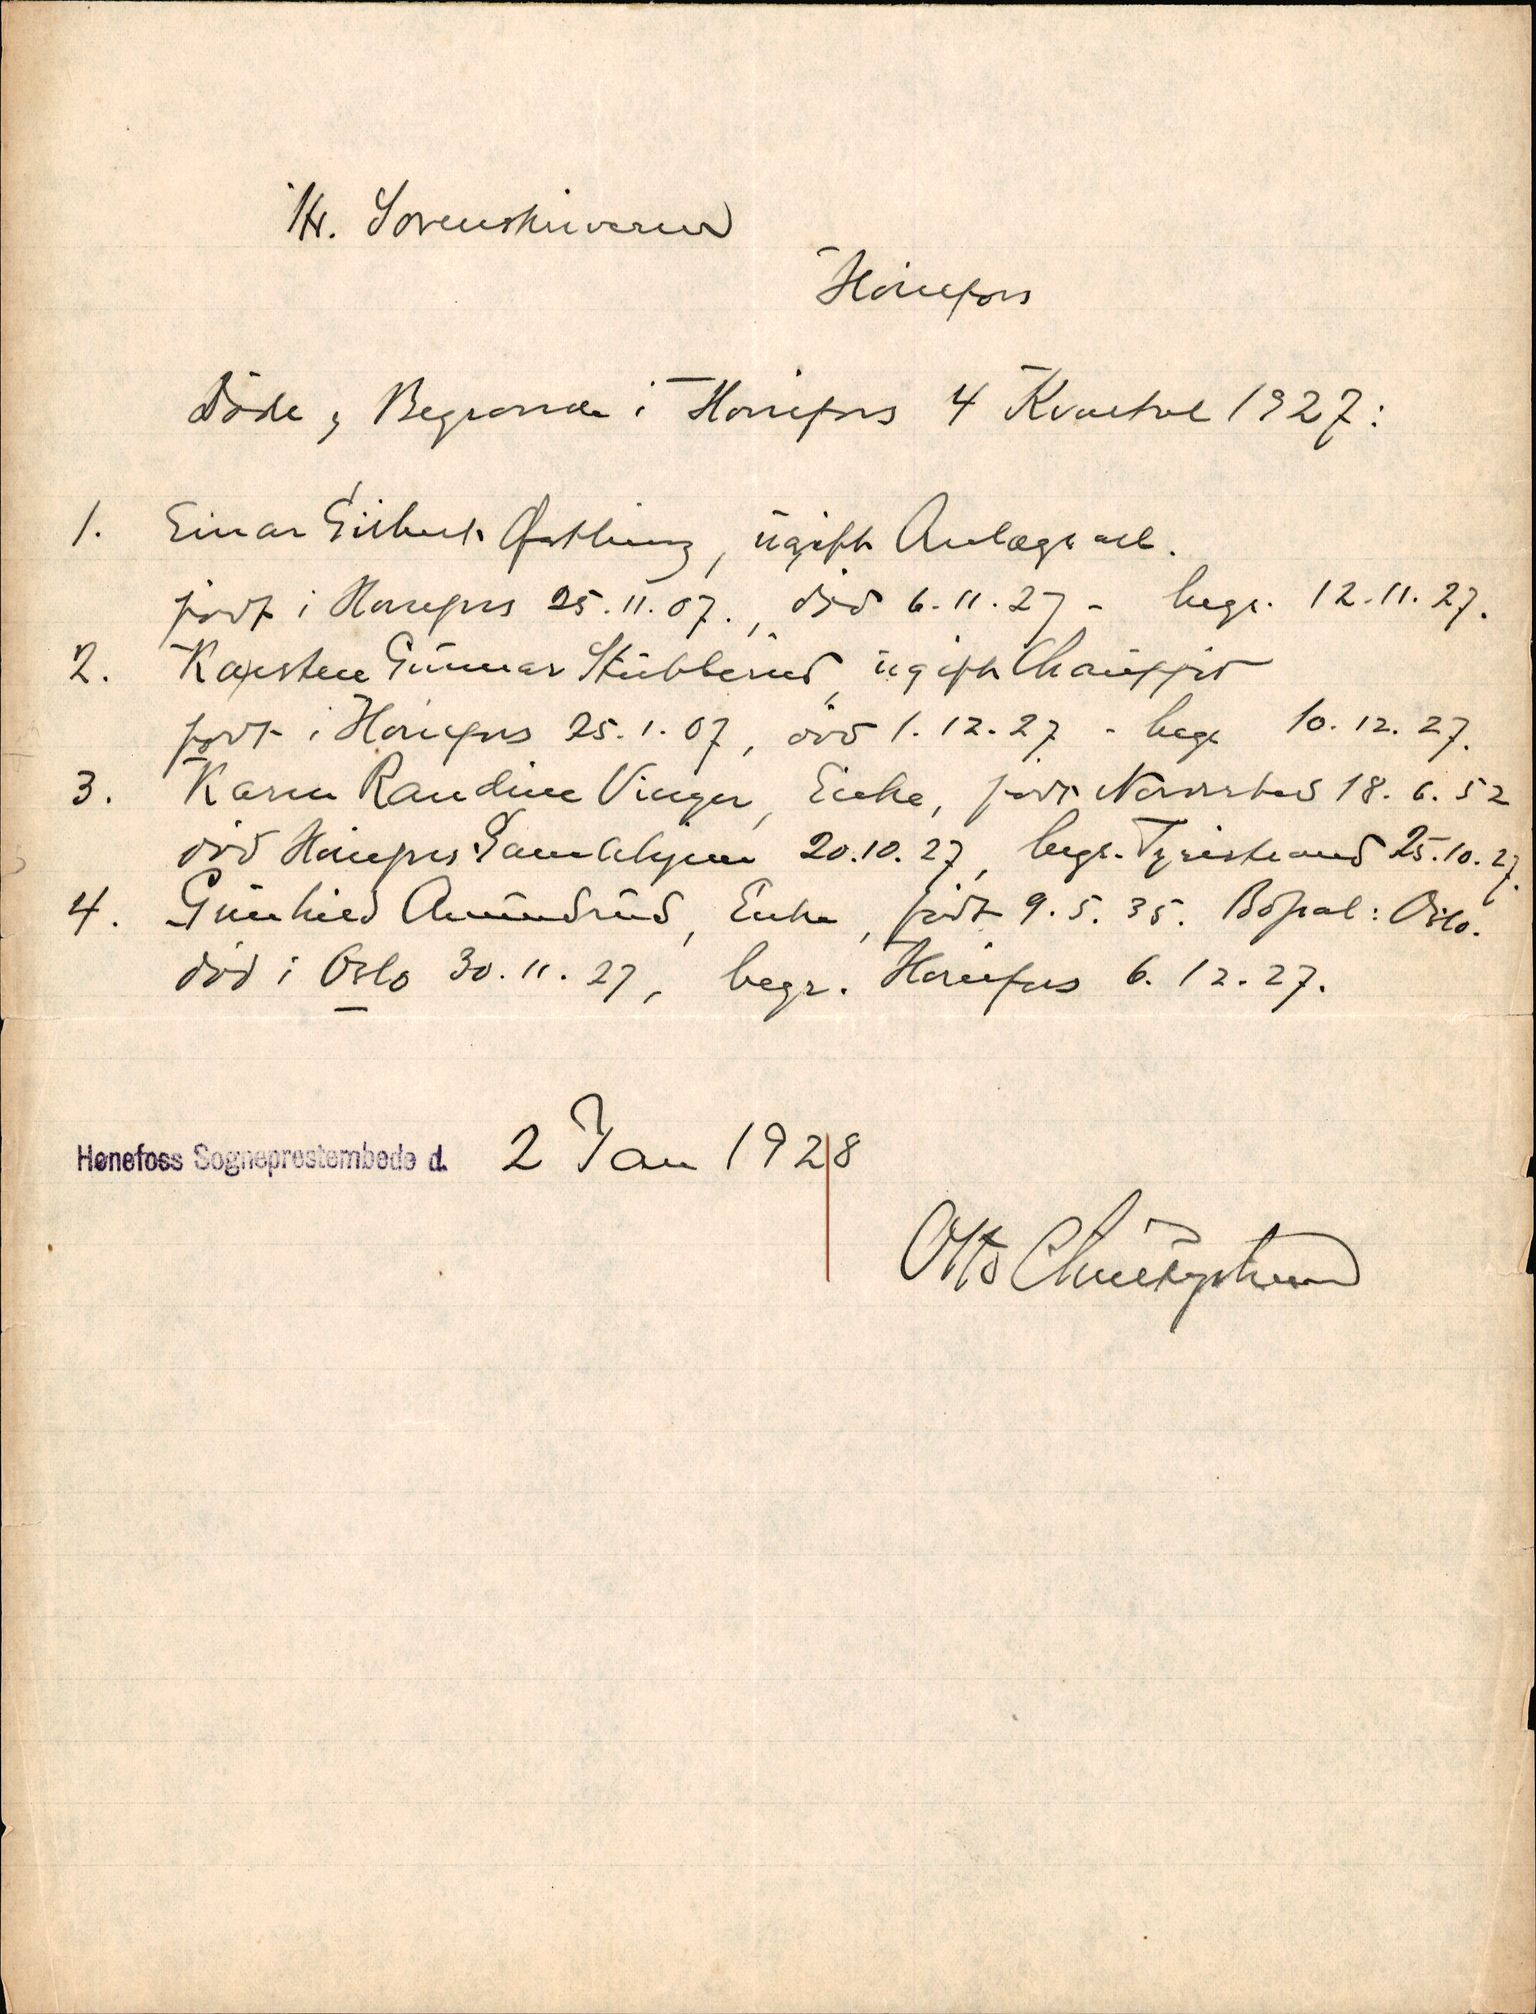 Hr. Sorenskriveren
Hönefos
Döde, Begravne i Hönefos 4 Kvartal 1927:
1. Einar Gilbert Østberg, ugift Anlægsarb.
født i Hönefos 25.11.07., död 6.11.27 - begr. 12.11.27.
2. Karsten Gunnar Stubberud, ugift Chauffør
født i Hönefos 25.1.07, död 1.12.27 - begr 10.12.27.
3. Karen Randine Vinger, Enke, född Norderhov 18.6.52
död Hönefos Gamlehjem 20.10.27, begr. Tyristrand 25.10.27.
4. Gunhild Amundrud, Enke, född 9.5.35. Bopæl: Oslo.
död i Oslo 30.11.27, begr. Hönefos 6.12.27.
Hønefoss Sogneprestembede d. 2 Jan 1928
Otto